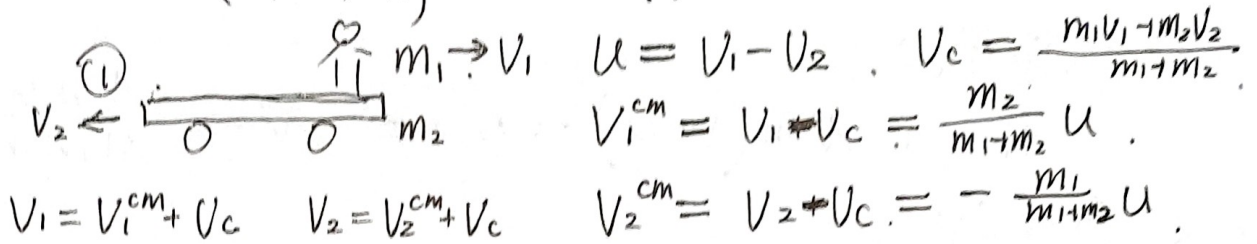 ① m₁ → V₁ U = V₁ - V₂ . V_c = \frac{m₁V₁+m₂V₂}{m₁+m₂}.
V₂ ← m₂ V₁^{cm} = V₁ - V_c = \frac{m₂}{m₁+m₂} U .
V₁ = V₁^{cm} + V_c V₂ = V₂^{cm} + V_c V₂^{cm} = V₂ - V_c = - \frac{m₁}{m₁+m₂} U .